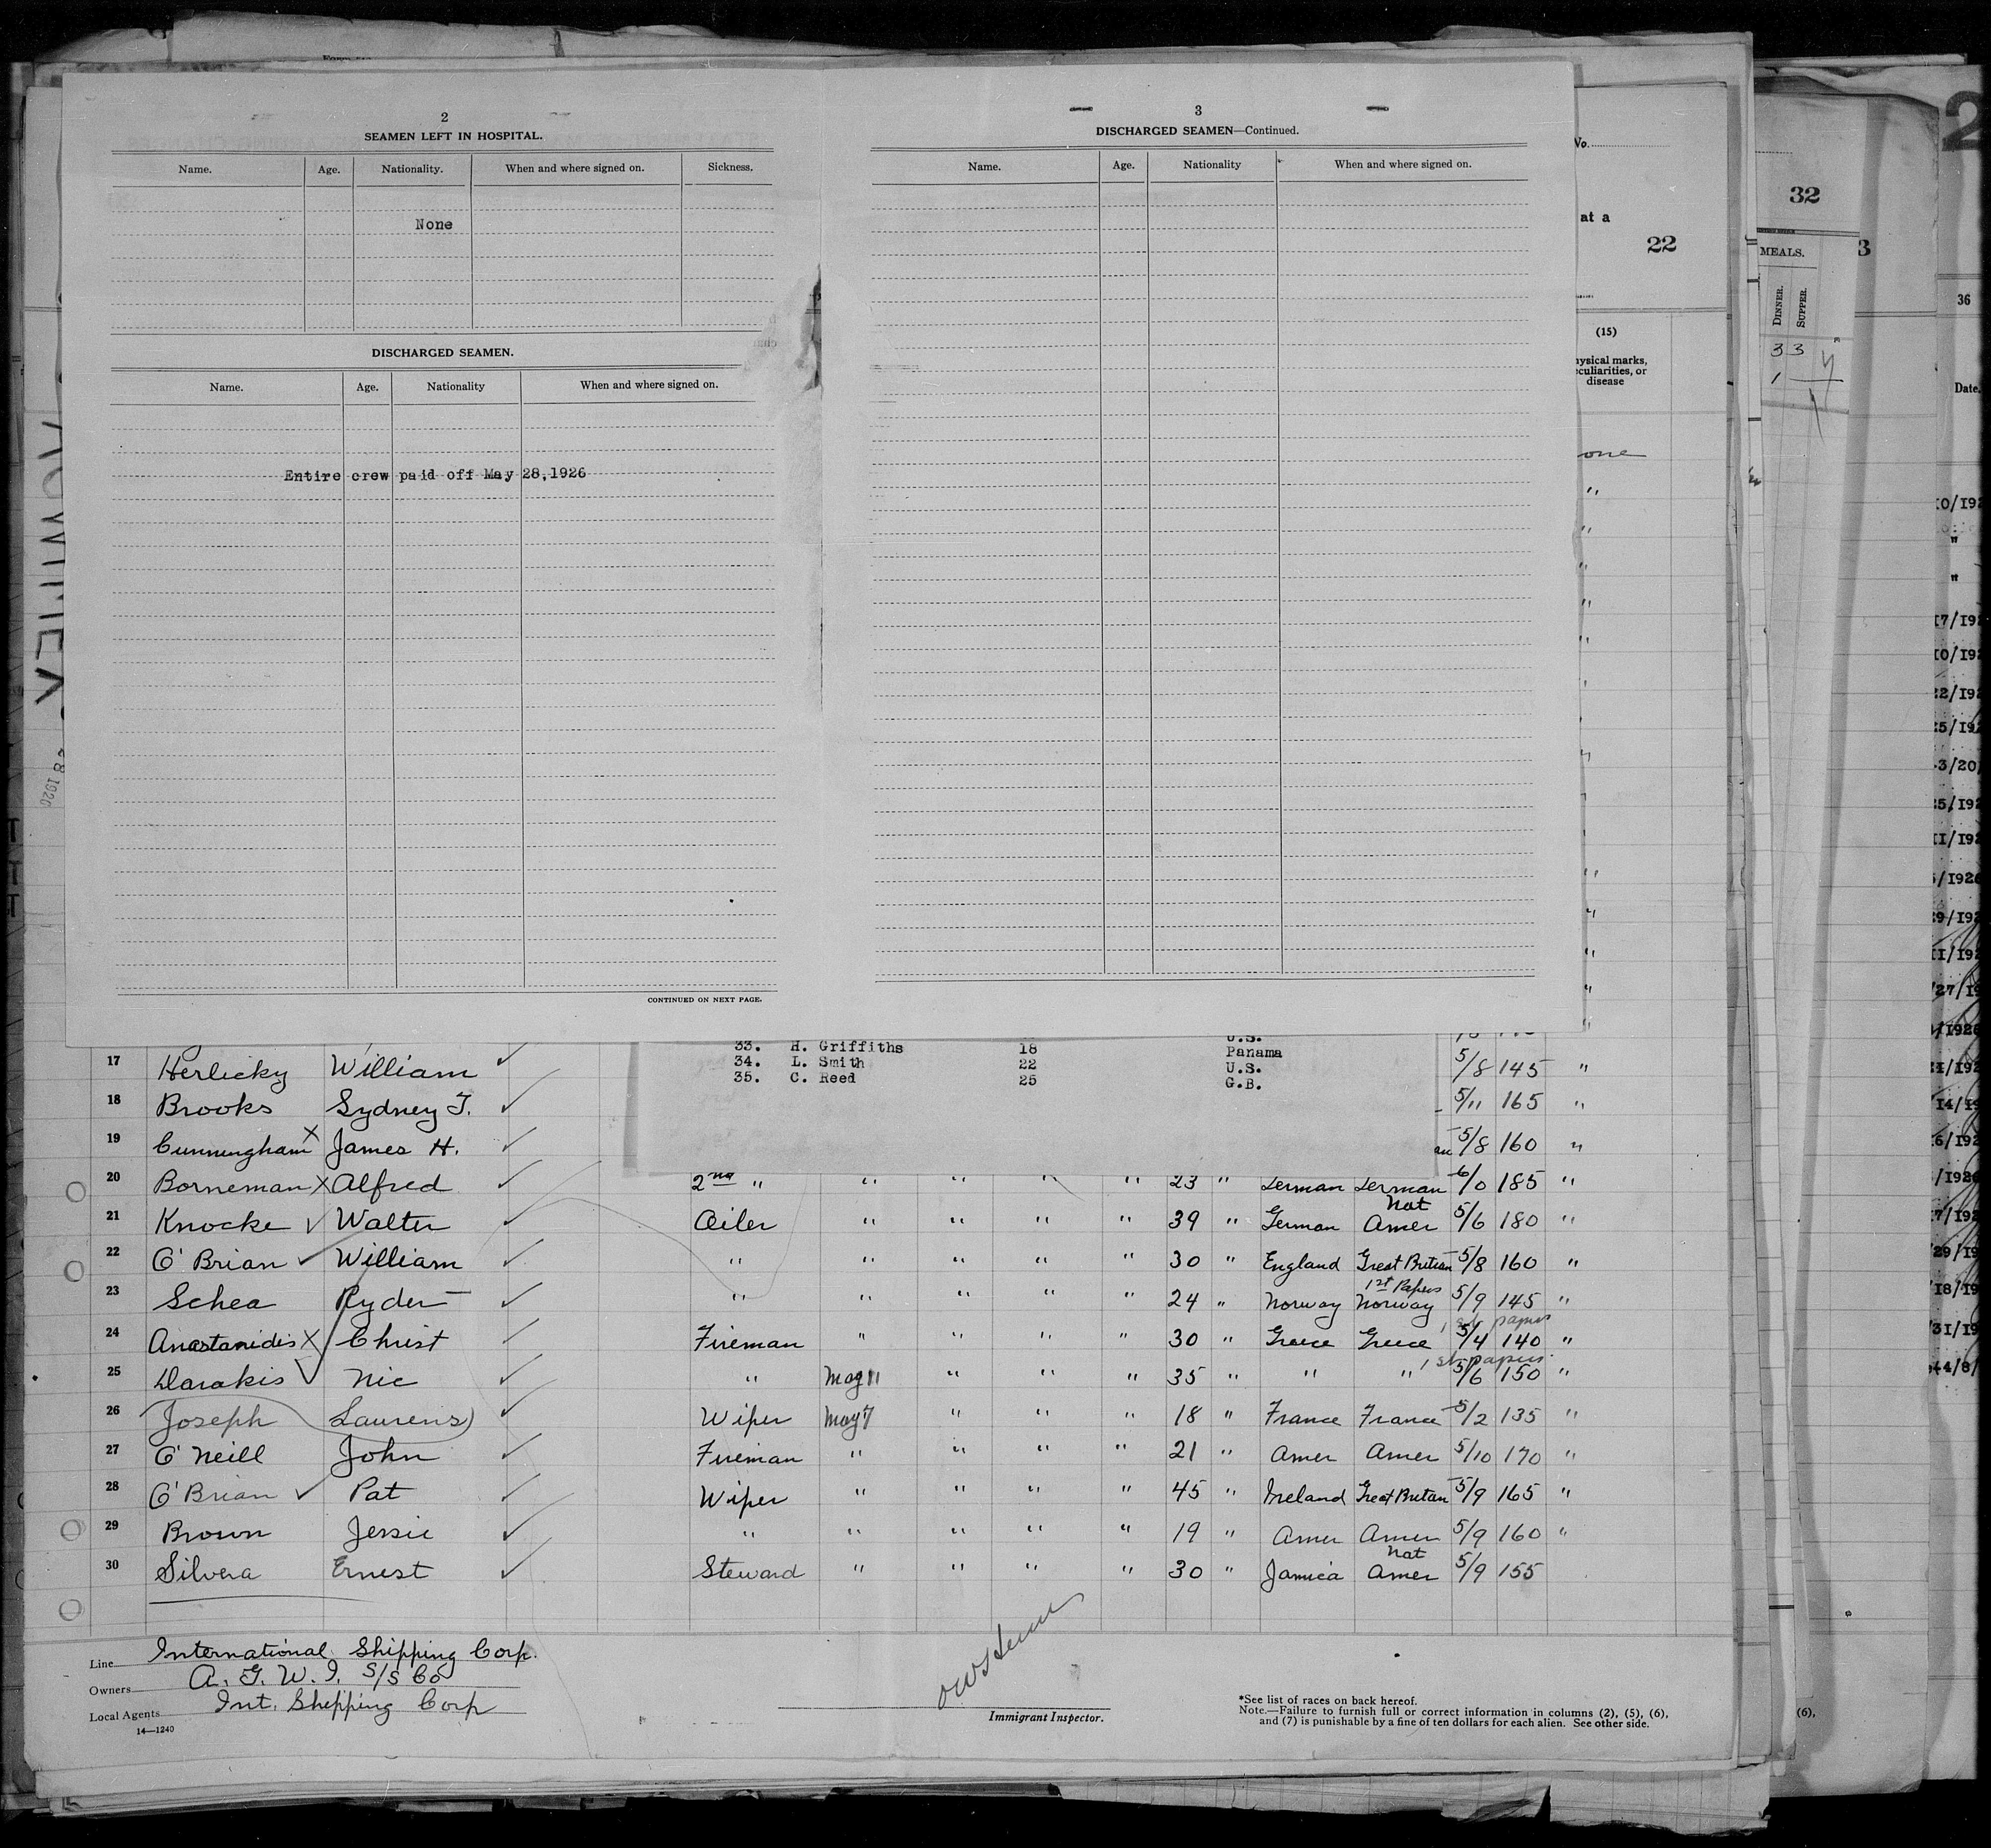 2
SEAMEN LEFT IN HOSPITAL.
Name. Age. Nationality. When and where signed on. Sickness.
None
DISCHARGED SEAMEN.
Name. Age. Nationality When and where signed on.
Entire crew paid off May 28,1926
CONTINUED ON NEXT PAGE.
3
DISCHARGED SEAMEN—Continued.
Name. Age. Nationality When and where signed on.
No.
at a
22
(15)
hysical marks,
eculiarities, or
disease
one
32
MEALS.
DINNER. SUPPER.
3 3
1
3
2
36
Date.
33. H. Griffiths 18 Panama
34. L. Smith 22 U.S.
35. C. Reed 25 G.B.
17 Herlicky William ✓ 5/8 145 "
18 Brooks Sydney T. ✓ 5/11 165 "
19 Cunningham X James H. ✓ 5/8 160 "
20 Borneman X Alfred ✓ 2nd " " " " " 23 " German German 6/0 185 "
21 Knocke ✓ Walter ✓ Oiler " " " " 39 " German Nat Amer 5/6 180 "
22 O'Brian ✓ William ✓ " " " " " 30 " England Great Britian 5/8 160 "
23 Schea Ryder ✓ " " " " " 24 " Norway 1st Papers Norway 5/9 145 "
24 Anastanidis X Christ ✓ Fireman " " " " 30 " Greece Greece 1st papers 5/4 140 "
25 Darakis ✓ Nic ✓ " May 11 " " " 35 " " " 1st papers 5/6 150 "
26 Joseph Laurens ✓ Wiper May 7 " " " 18 " France France 5/2 135 "
27 O'Neill John ✓ Fireman " " " " 21 " Amer Amer 5/10 170 "
28 O'Brian ✓ Pat ✓ Wiper " " " " 45 " Ireland Great Britan 5/9 165 "
29 Brown Jessie ✓ " " " " " 19 " Amer Amer 5/9 160 "
30 Silvera Ernest ✓ Steward " " " " 30 " Jamica Nat Amer 5/9 155
Line International Shipping Corp.
Owners A. G. W. I. S/S Co
Local Agents Int. Shipping Corp
14—1240
Immigrant Inspector.
*See list of races on back hereof.
Note.—Failure to furnish full or correct information in columns (2), (5), (6),
and (7) is punishable by a fine of ten dollars for each alien. See other side.
(6),